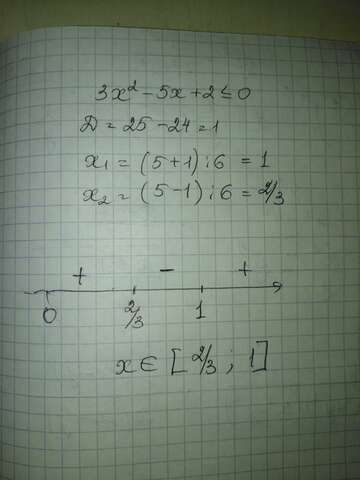 3x² - 5x + 2 ≤ 0
D = 25 - 24 = 1
x₁ = (5 + 1) : 6 = 1
x₂ = (5 - 1) : 6 = 2/3
+ - +
0 2/3 1
x ∈ [2/3 ; 1]